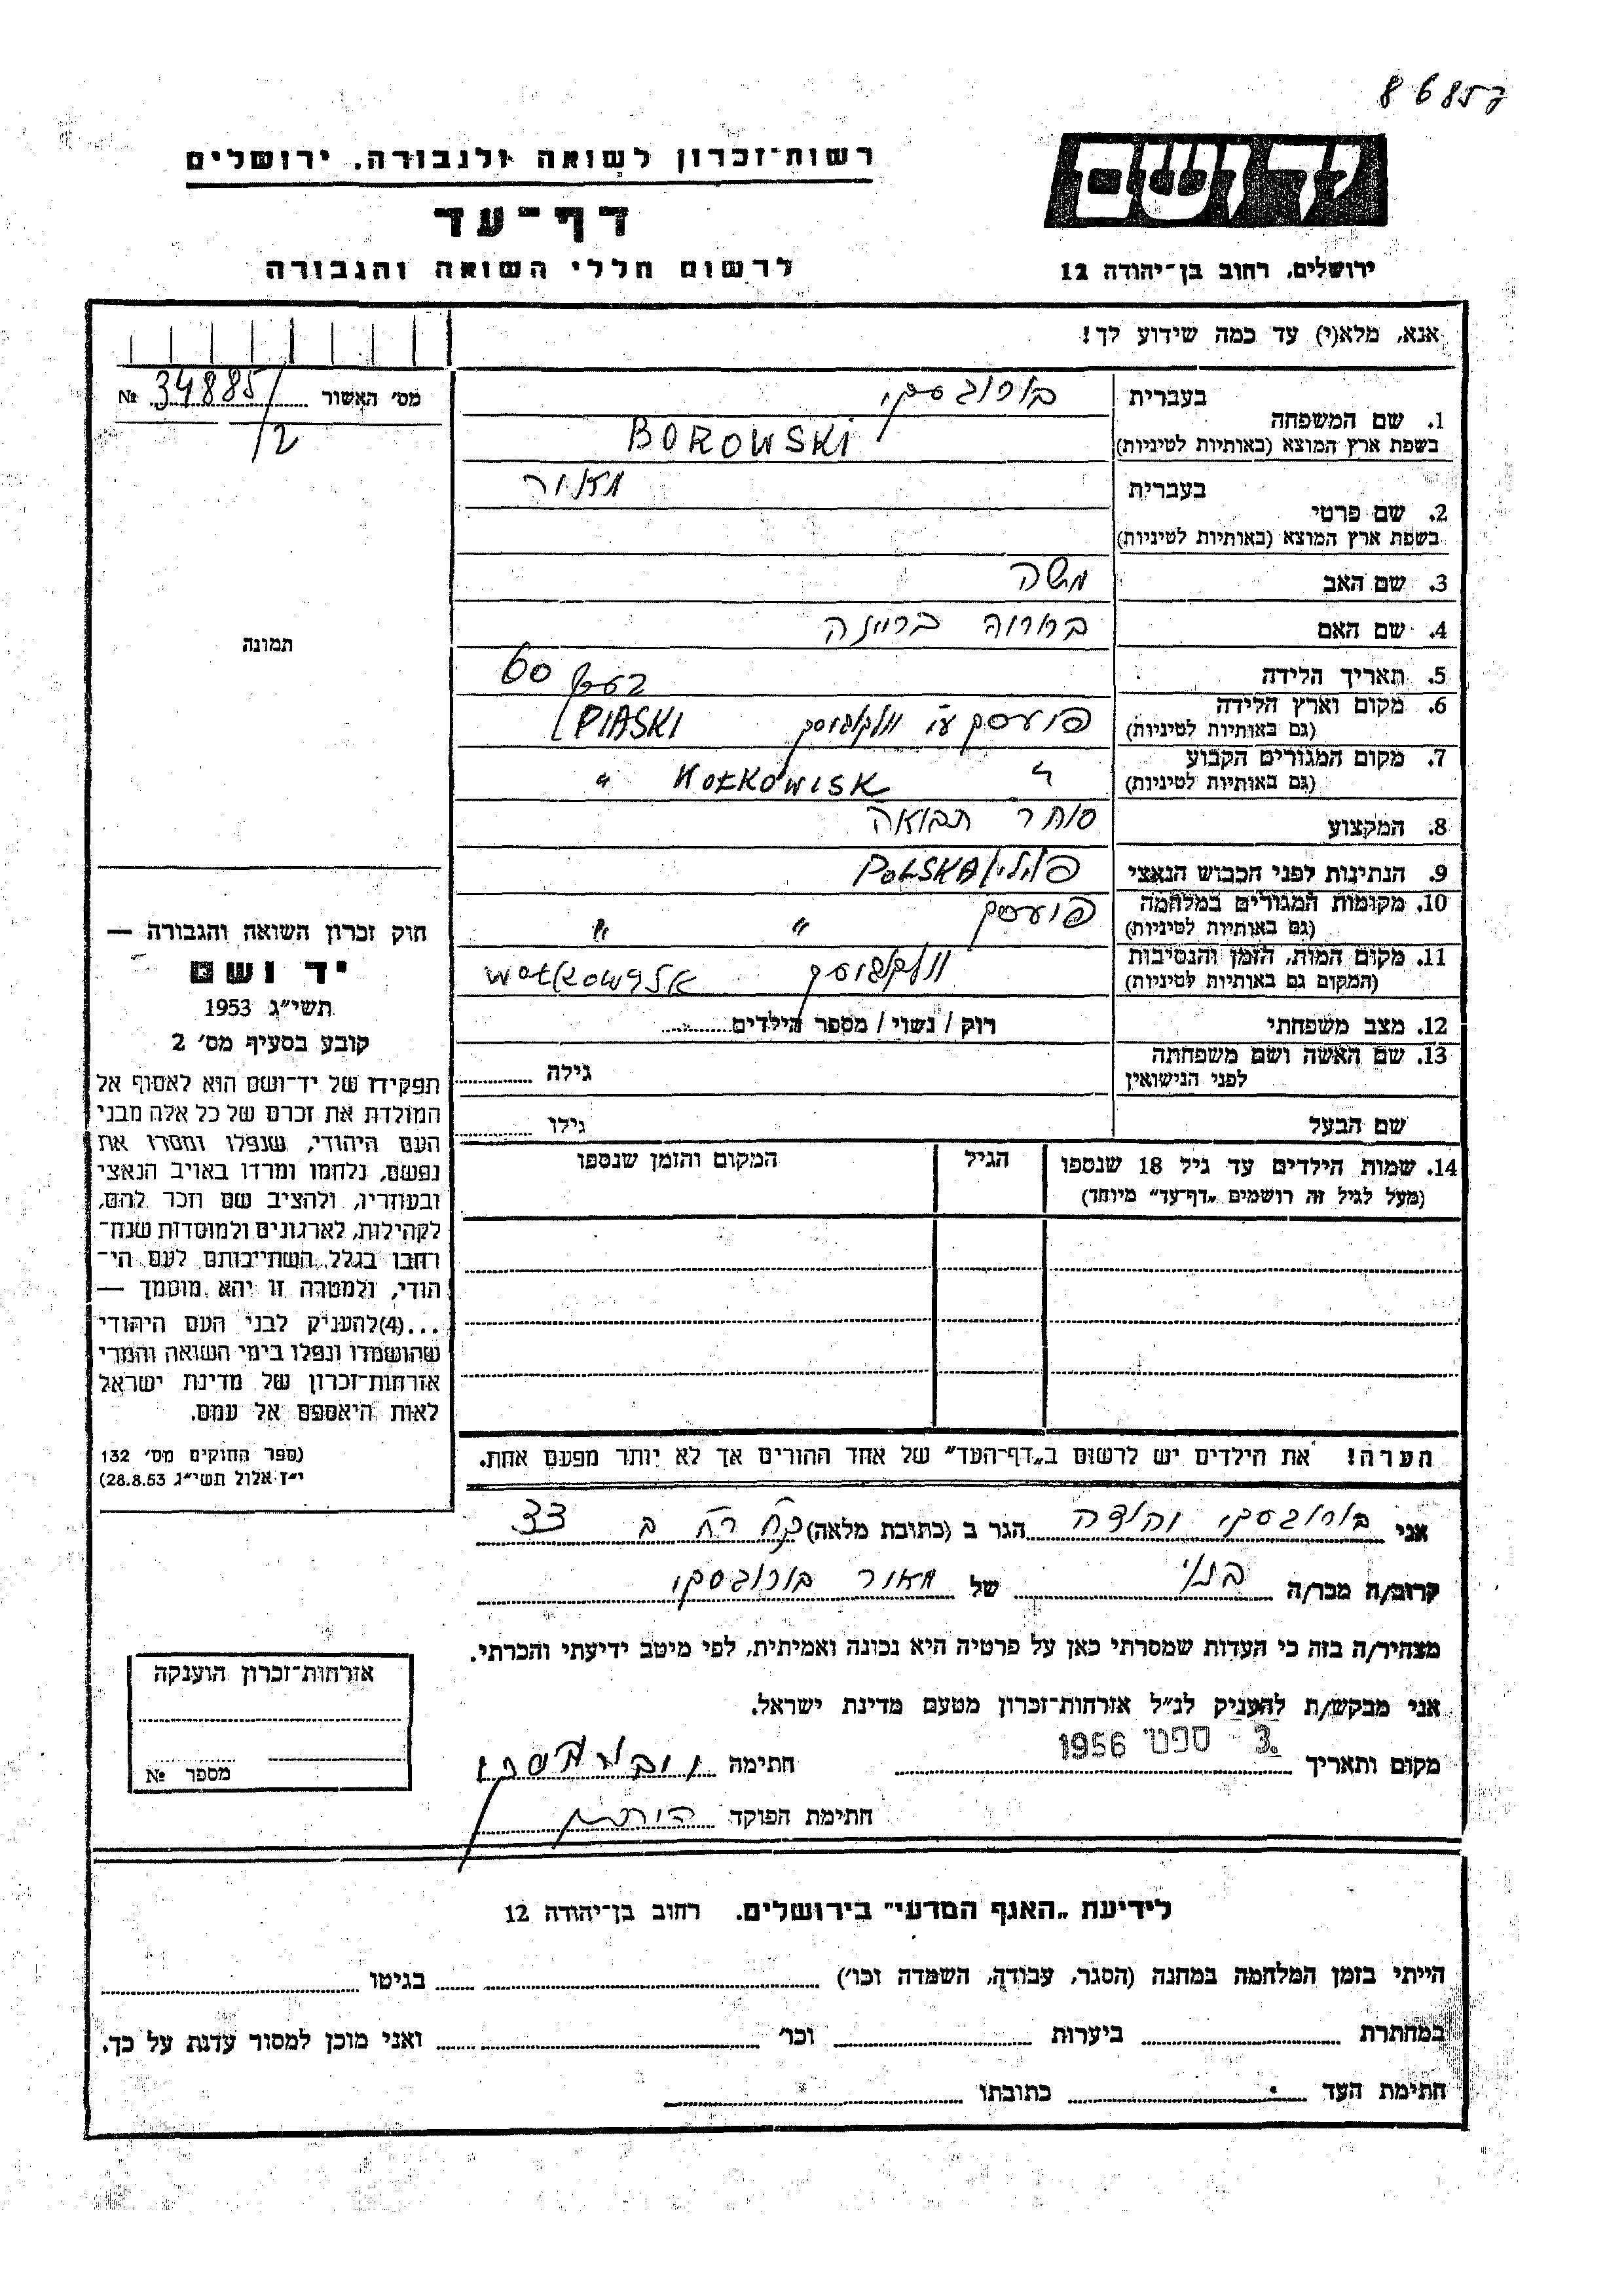 86857
יד ושם
רשות־זכרון לשואה ולגבורה, ירושלים
דף־עד
לרשום חללי השואה והגבורה
ירושלים, רחוב בן־יהודה 12
אנא, מלא(י) עד כמה שידוע לך!
מס׳ האשור № 34885/
/2
תמונה
1. שם המשפחה
בעברית בורובסקי
בשפת ארץ המוצא (באותיות לטיניות) BOROWSKi
2. שם פרטי
בעברית מאור
בשפת ארץ המוצא (באותיות לטיניות)
3. שם האב משה
4. שם האם
5. תאריך הלידה 60
6. מקום וארץ הלידה
(גם באותיות לטיניות) PIASKI
7. מקום המגורים הקבוע
(גם באותיות לטיניות) " WOŁKOWISK "
8. המקצוע סוחר תבואה
9. הנתינות לפני הכבוש הנאצי פולין POLSKA
10. מקומות המגורים במלחמה
(גם באותיות לטיניות) " "
11. מקום המות, הזמן והנסיבות
(המקום גם באותיות לטיניות)
12. מצב משפחתי רוק / נשוי / מספר הילדים
13. שם האשה ושם משפחתה
לפני הנישואין גילה
שם הבעל גילו
14. שמות הילדים עד גיל 18 שנספו הגיל המקום והזמן שנספו
(מעל לגיל זה רושמים „דף־עד״ מיוחד)
הערה! את הילדים יש לרשום ב„דף־העד״ של אחד ההורים אך לא יותר מפעם אחת.
חוק זכרון השואה והגבורה —
יד ושם
תשי״ג 1953
קובע בסעיף מס׳ 2
תפקידו של יד־ושם הוא לאסוף אל
המולדת את זכרם של כל אלה מבני
העם היהודי, שנפלו ומסרו את
נפשם, נלחמו ומרדו באויב הנאצי
ובעוזריו, ולהציב שם וזכר להם,
לקהילות, לארגונים ולמוסדות שנח־
רבו בגלל השתייכותם לעם הי־
הודי, ולמטרה זו יהא מוסמך —
...(4)להעניק לבני העם היהודי
שהושמדו ונפלו בימי השואה והמרי
אזרחות־זכרון של מדינת ישראל
לאות היאספם אל עמם.
(ספר החוקים מס׳ 132
י״ז אלול תשי״ג 28.8.53)
אני בורובסקי יהודה הגר ב (כתובת מלאה) 33
קרוב/ה מכר/ה של מאור בורובסקי
מצהיר/ה בזה כי העדות שמסרתי כאן על פרטיה היא נכונה ואמיתית, לפי מיטב ידיעתי והכרתי.
אני מבקש/ת להעניק לנ״ל אזרחות־זכרון מטעם מדינת ישראל.
מקום ותאריך 3. ספט׳ 1956 חתימה
חתימת הפוקד
אזרחות־זכרון הוענקה
מספר №
לידיעת „האגף המדעי״ בירושלים. רחוב בן־יהודה 12
הייתי בזמן המלחמה במחנה (הסגר, עבודה, השמדה וכו׳) בגיטו
במחתרת ביערות וכו׳ ואני מוכן למסור עדות על כך.
חתימת העד כתובתו